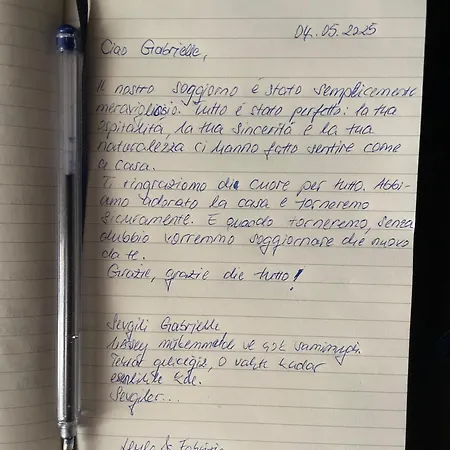 04.05.2025
Ciao Gabrielle,
Il nostro soggiorno é stato semplicemente
meraviglioso. Tutto é stato perfetto: la tua
ospitalità, la tua sincerità e la tua
naturalezza ci hanno fatto sentire come
a casa.
Ti ringraziamo di cuore per tutto. Abbi-
amo adorato la casa e torneremo
sicuramente. E quando torneremo, senza
dubbio vorremmo soggiornare di nuovo
da te.
Grazie, grazie di tutto!
Sevgili Gabrielle
herşey mükemmeldi ve çok samimiydi.
Tekrar geleceğiz, O vakte kadar
esenlikle kal.
Sevgiler...